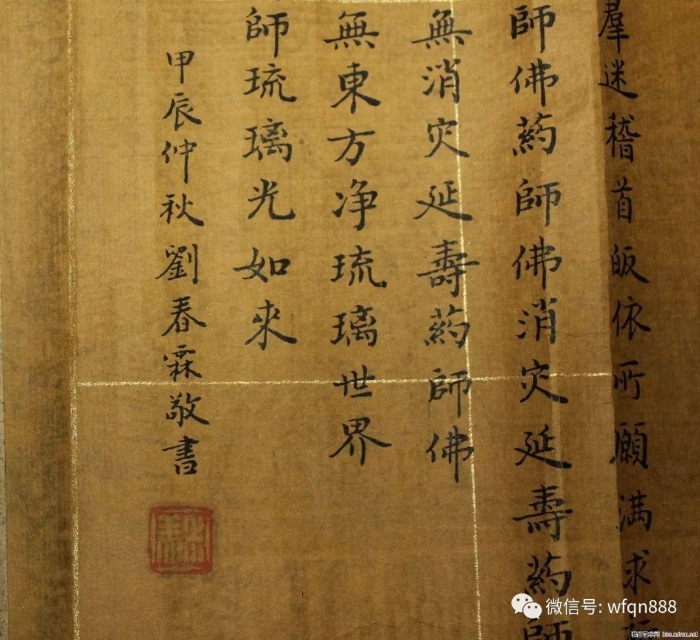 羣迷稽首皈依所願满求
師佛葯師佛消灾延壽葯師
無消灾延壽葯師佛
無東方净琉璃世界
師琉璃光如來
甲辰仲秋劉春霖敬書
微信号: wfqn888